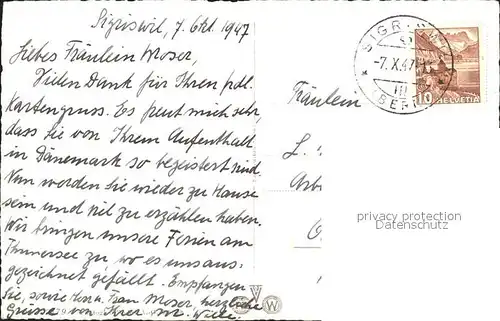 Sigriswil, 7. Okt. 1947
Liebes Fräulein Moser,
Vielen Dank für Ihren frdl.
Kartengruss. Es freut mich sehr,
dass Sie von Ihrem Aufenthalt
in Dänemark so begeistert sind.
Nun werden Sie wieder zu Hause
sein und viel zu erzählen haben.
Wir bringen unsere Ferien am
Thunersee zu wo es uns aus-
gezeichnet gefällt. Empfangen
Sie, sowie Herr u. Frau Moser, herzliche
Grüsse von Ihrer M.
Fräulein
L.
Arb
SIGRISWIL
-7.X.47
(BERN)
10 HELVETIA
privacy protection
Datenschutz
W